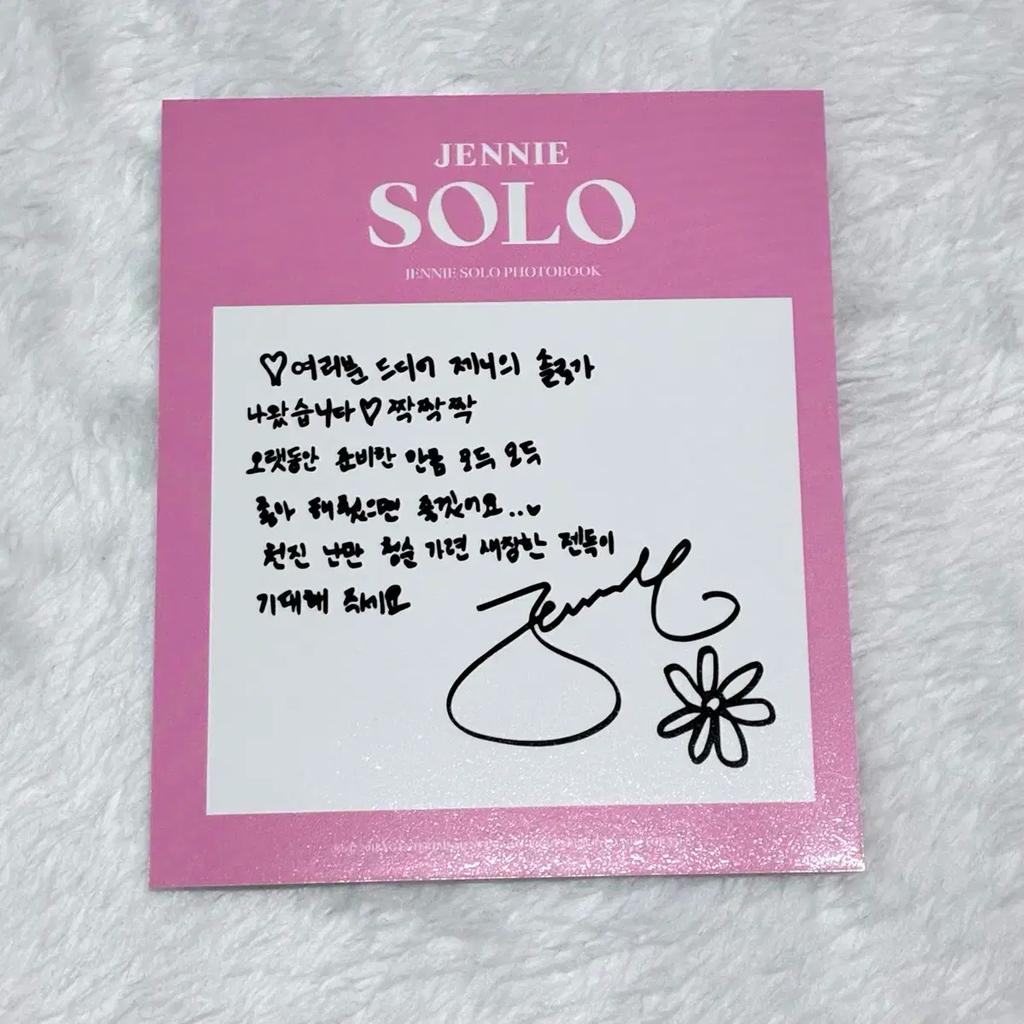 JENNIE
SOLO
JENNIE SOLO PHOTOBOOK
♡여러분 드디어 제니의 솔로가
나왔습니다♡ 짝짝짝
오랫동안 준비한 만큼 모두 모두
좋아 해줬으면 좋겠어요..♥
천진 난만 청순 가련 새침한 젠득이
기대해 주세요
Jennie